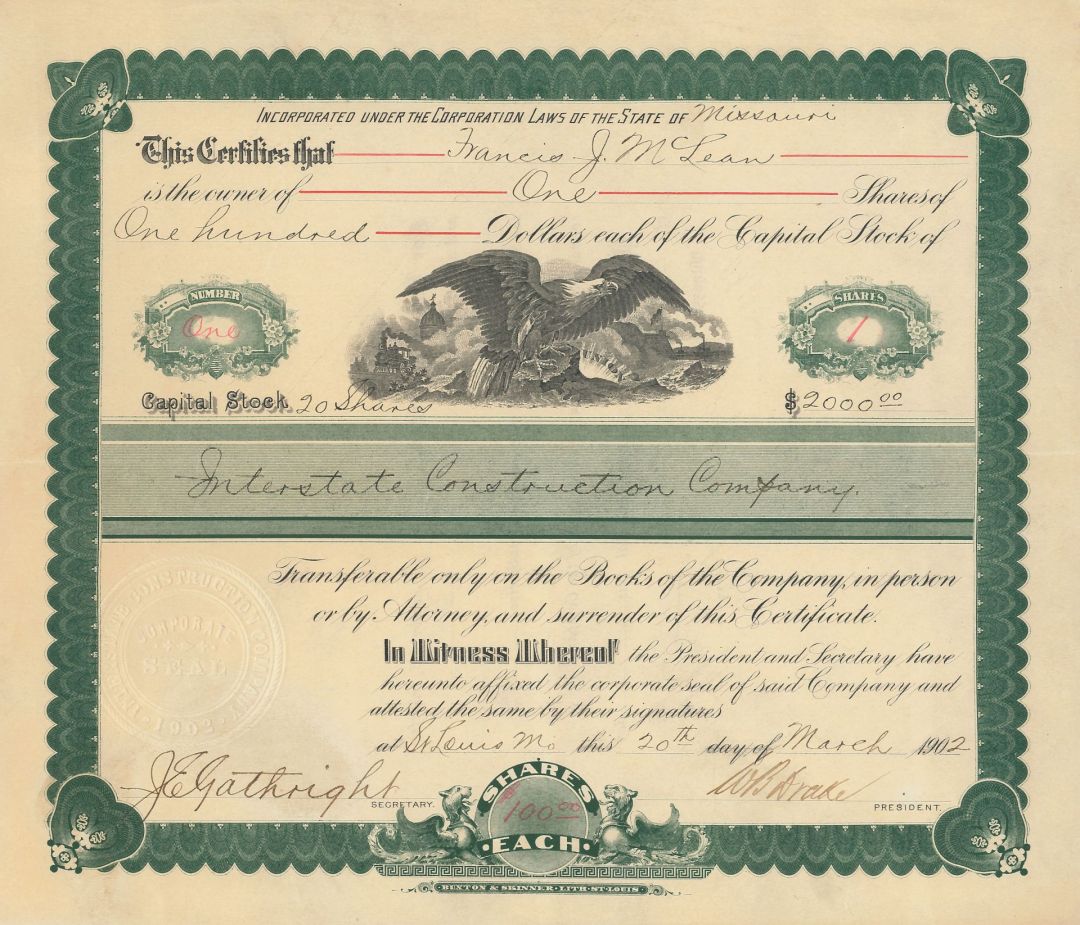 INCORPORATED UNDER THE CORPORATION LAWS OF THE STATE OF Missouri
This Certifies that Francis J. McLean
is the owner of One Shares of
One hundred Dollars each of the Capital Stock of
NUMBER
One
SHARES
1
UNION
Capital Stock 20 Shares $2000.00
Interstate Construction Company.
Transferable only on the Books of the Company, in person
or by Attorney, and surrender of this Certificate.
In Witness Whereof the President and Secretary have
hereunto affixed the corporate seal of said Company and
attested the same by their signatures
at St Louis Mo this 20th day of March 1902
INTERSTATE CONSTRUCTION COMPANY
CORPORATE
SEAL
1902
J E Gathright SECRETARY.
W B Drake PRESIDENT.
SHARES
$100.00
EACH
BUXTON & SKINNER·LITH·ST·LOUIS